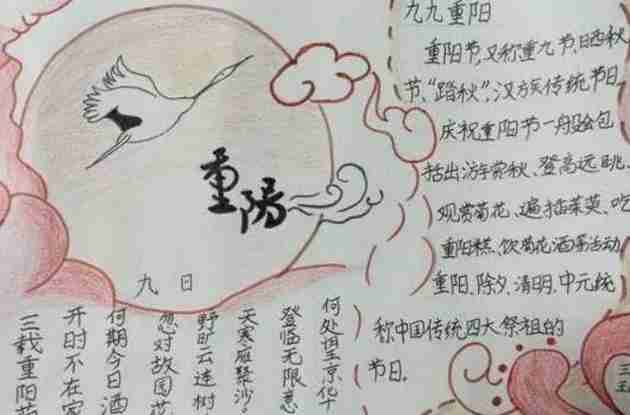 九九重阳
重阳节,又称重九节、晒秋
节、“踏秋”,汉族传统节日
庆祝重阳节一般会包
括出游赏秋、登高远眺、
观赏菊花、遍插茱萸、吃
重阳糕、饮菊花酒等活动
重阳、除夕、清明、中元统
称中国传统四大祭祖的
节日.
重陽
九日
何处望京华
登临无限意
天寒雁聚沙。
野旷云连树
忽对故园花
何期今日酒
开时不在家
三载重阳